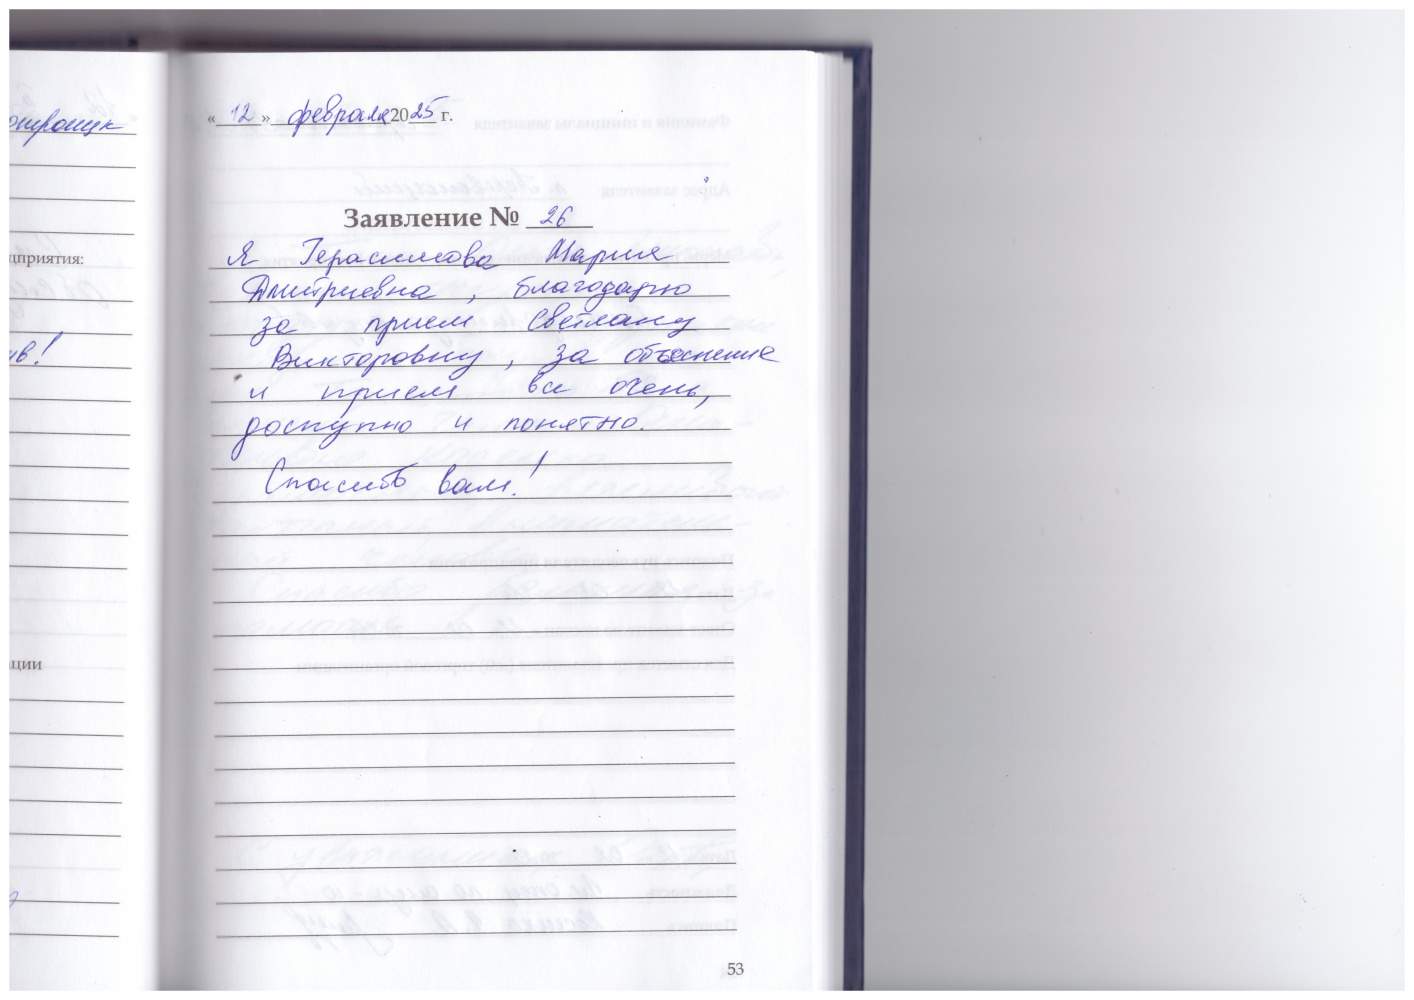 «12» февраля 2025 г.
Заявление № 26
Я Герасимова Мария
Дмитриевна, благодарю
за прием Светлану
Викторовну, за объяснение
и прием все очень,
доступно и понятно.
Спасибо вам!
дприятия:
ив!
ации
53